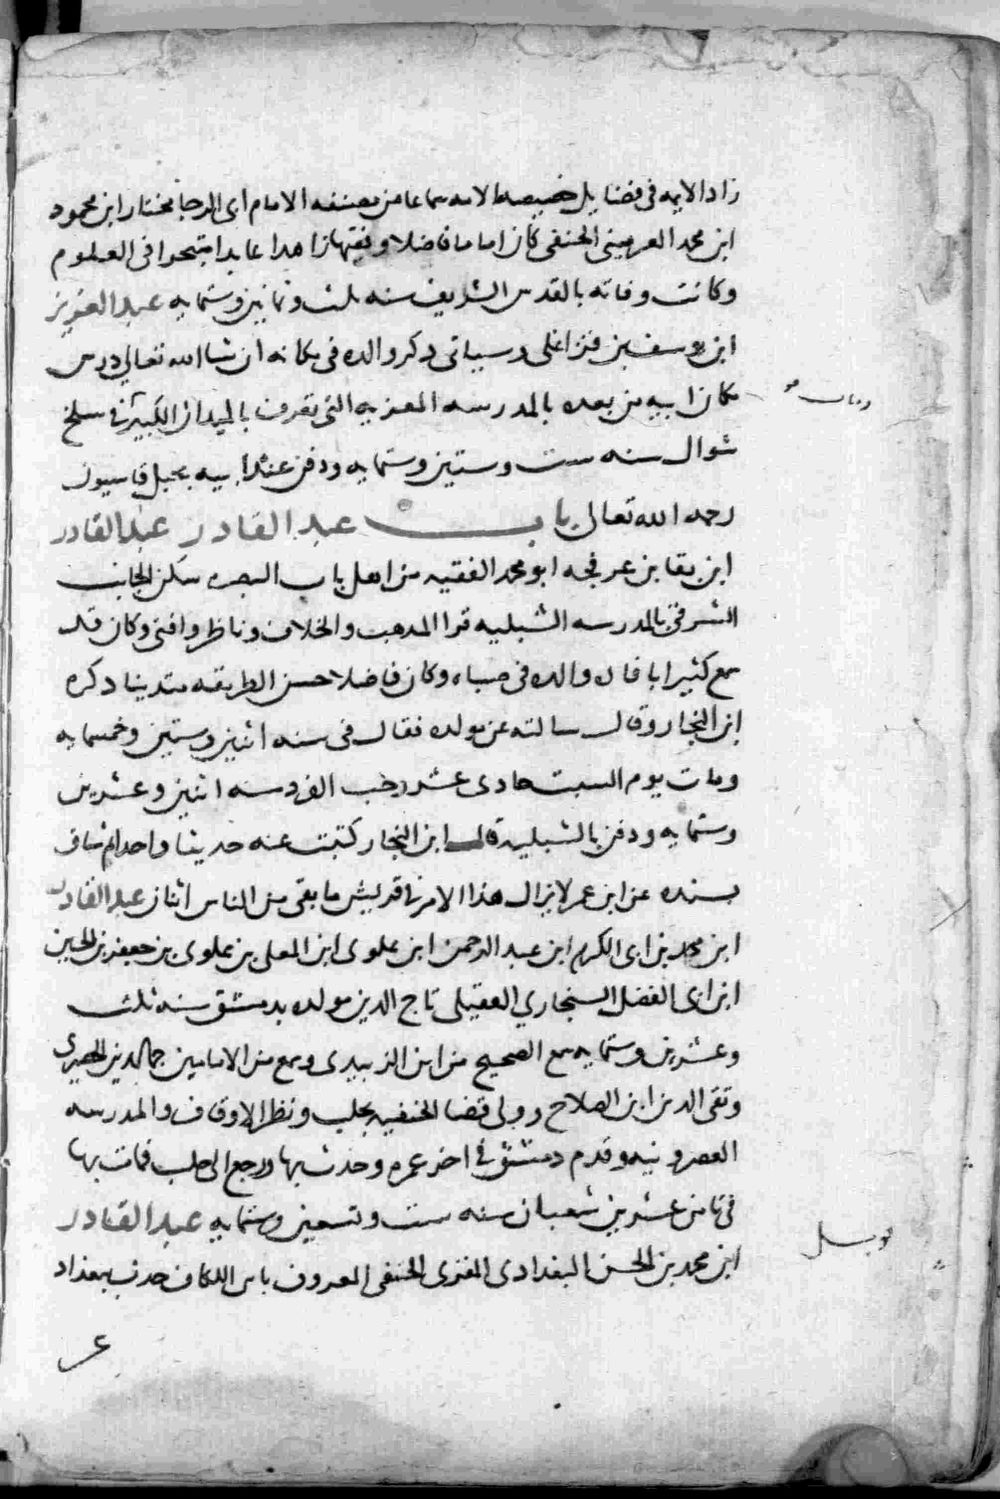 زاد الايمه فى فضايل خصيصه الامه سماعا من مصنفه الامام ابى الرجا مختار ابن محمود
ابن محمد العرمينى الحنفى كان اماما فاضلا وفقيها زاهدا عابدا متبحرا فى العلوم
وكانت وفاته بالقدس الشريف سنه ثلث وثمانين وستمايه عبد العزيز
ابن يوسف بن قزاغلى وسياتى ذكر والده فى مكانه ان شاالله تعالى درس
مكان ابيه من بعده بالمدرسه المعزيه التى تعرف بالميدان الكبير فى سلخ
ومات
شوال سنه ست وستين وستمايه ودفن عند ابيه بجبل قاسيون
رحمه الله تعالى باب عبد القادر عبد القادر
ابن بقا بن عرفجه ابو محمد الفقيه من اهل باب البصره سكن الجانب
الشرقى بالمدرسه الشبليه قرا المذهب والخلاف وناظر وافتى وكان قد
سمع كثيرا بافاده والده فى صباه وكان فاضلا حسن الطريقه متدينا ذكره
ابن النجار وقال سالته عن مولده فقال فى سنه اثنين وستين وخمسمايه
ومات يوم السبت حادى عشر رجب الفرد سنه اثنين وعشرين
وستمايه ودفن بالشبليه قال ابن النجار كتبت عنه حديثا واحدا ثم ساق
بسنده عن ابن عمر لا يزال هذا الامر فى قريش ما بقى من الناس اثنان عبد القادر
ابن محمد بن ابى الكرم ابن عبد الرحمن ابن علوى ابن المعلى بن علوى بن جعفر بن الحسين
ابن ابى الفضل السنجاري العقيلى تاج الدين مولده بدمشق سنه ثلث
وعشرين وستمايه سمع الصحيح من ابن الزبيدى وسمع من الامامين جمال الدين الحصيرى
وتقى الدين ابن الصلاح وولى قضا الحنفيه بحلب ونظر الاوقاف والمدرسه
العصرونيه وقدم دمشق فى اخر عمره وحدث بها ورجع الى حلب فمات بها
فى ثامن عشرين شعبان سنه ست وتسعين وستمايه عبد القادر
ابن محمد بن الحسن البغدادى المقرى الحنفى المعروف بابن اللكاف حدث ببغداد
قوبل
عن